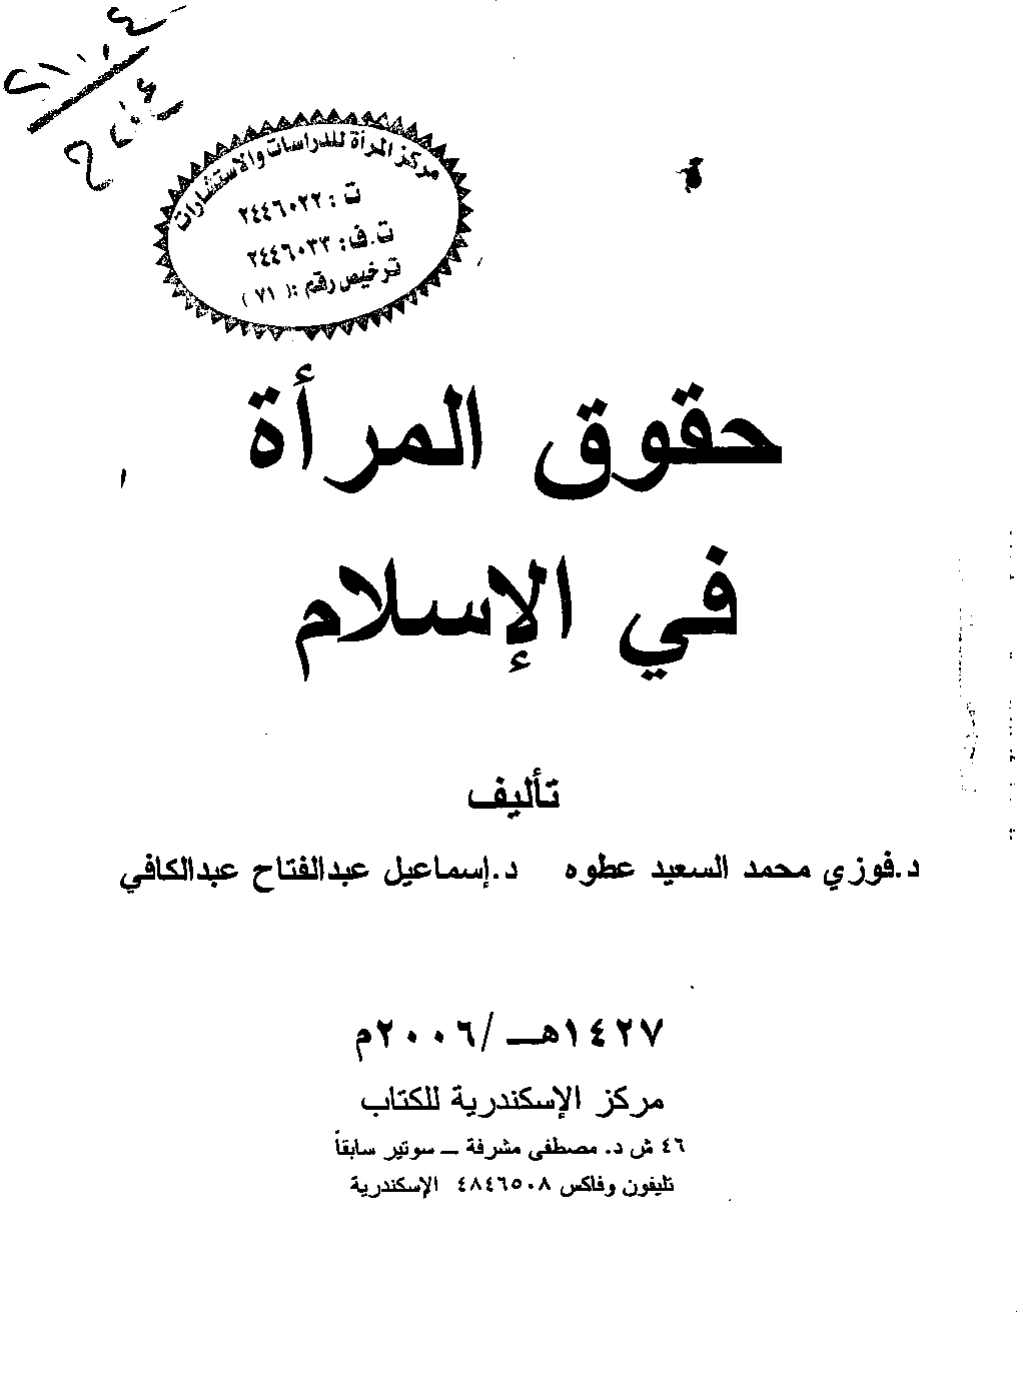 مركز المرأة للدراسات والاستشارات
ت : ٢٤٤٦٠٢٢
ت.ف: ٢٤٤٦٠٣٣
ترخيص رقم :( ٧١ )
حقوق المرأة
في الإسلام
تأليف
د.فوزي محمد السعيد عطوه د.إسماعيل عبدالفتاح عبدالكافي
١٤٢٧هـ /٢٠٠٦م
مركز الإسكندرية للكتاب
٤٦ ش د. مصطفى مشرفة ــ سوتير سابقاً
تليفون وفاكس ٤٨٤٦٥٠٨ الإسكندرية